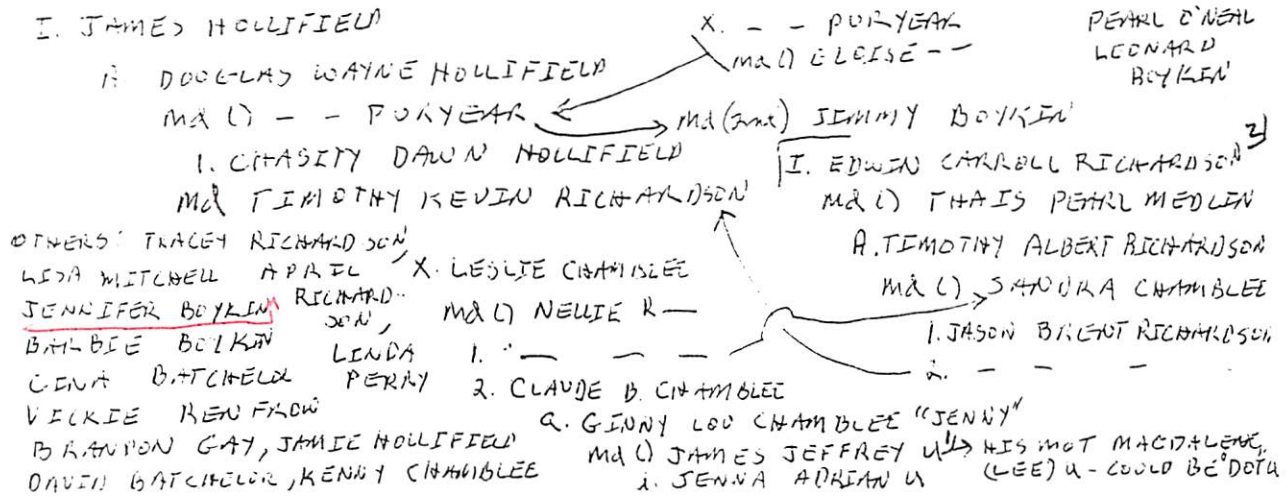 I. JAMES HOLLIFIELD
A DOUGLAS WAYNE HOLLIFIELD
md () - - PURYEAR
1. CHASITY DAWN HOLLIFIELD
md TIMOTHY KEVIN RICHARDSON
X. - - PURYEAR
md () ELOISE - -
md (2nd) JIMMY BOYKIN
PEARL O'NEAL
LEONARD
BOYKIN
I. EDWIN CARROLL RICHARDSON 3)
md () THAIS PEARL MEDLIN
A. TIMOTHY ALBERT RICHARDSON
md () SANDRA CHAMBLEE
1. JASON BRENT RICHARDSON
2. - - -
OTHERS: TRACEY RICHARDSON,
LISA MITCHELL APRIL
JENNIFER BOYKIN RICHARD-
SON,
BARBIE BOYKIN LINDA
GINA BATCHELOR PERRY
VICKIE RENFROW
BRANDON GAY, JAMIE HOLLIFIELD
DAVID BATCHELOR, KENNY CHAMBLEE
X. LESLIE CHAMBLEE
md () NELLIE R —
1. - — — —
2. CLAUDE B. CHAMBLEE
a. GINNY LOU CHAMBLEE "JENNY"
md () JAMES JEFFREY U HIS MOT MAGDALENE
(LEE) U - COULD BE DOTU
i. JENNA ADRIAN U